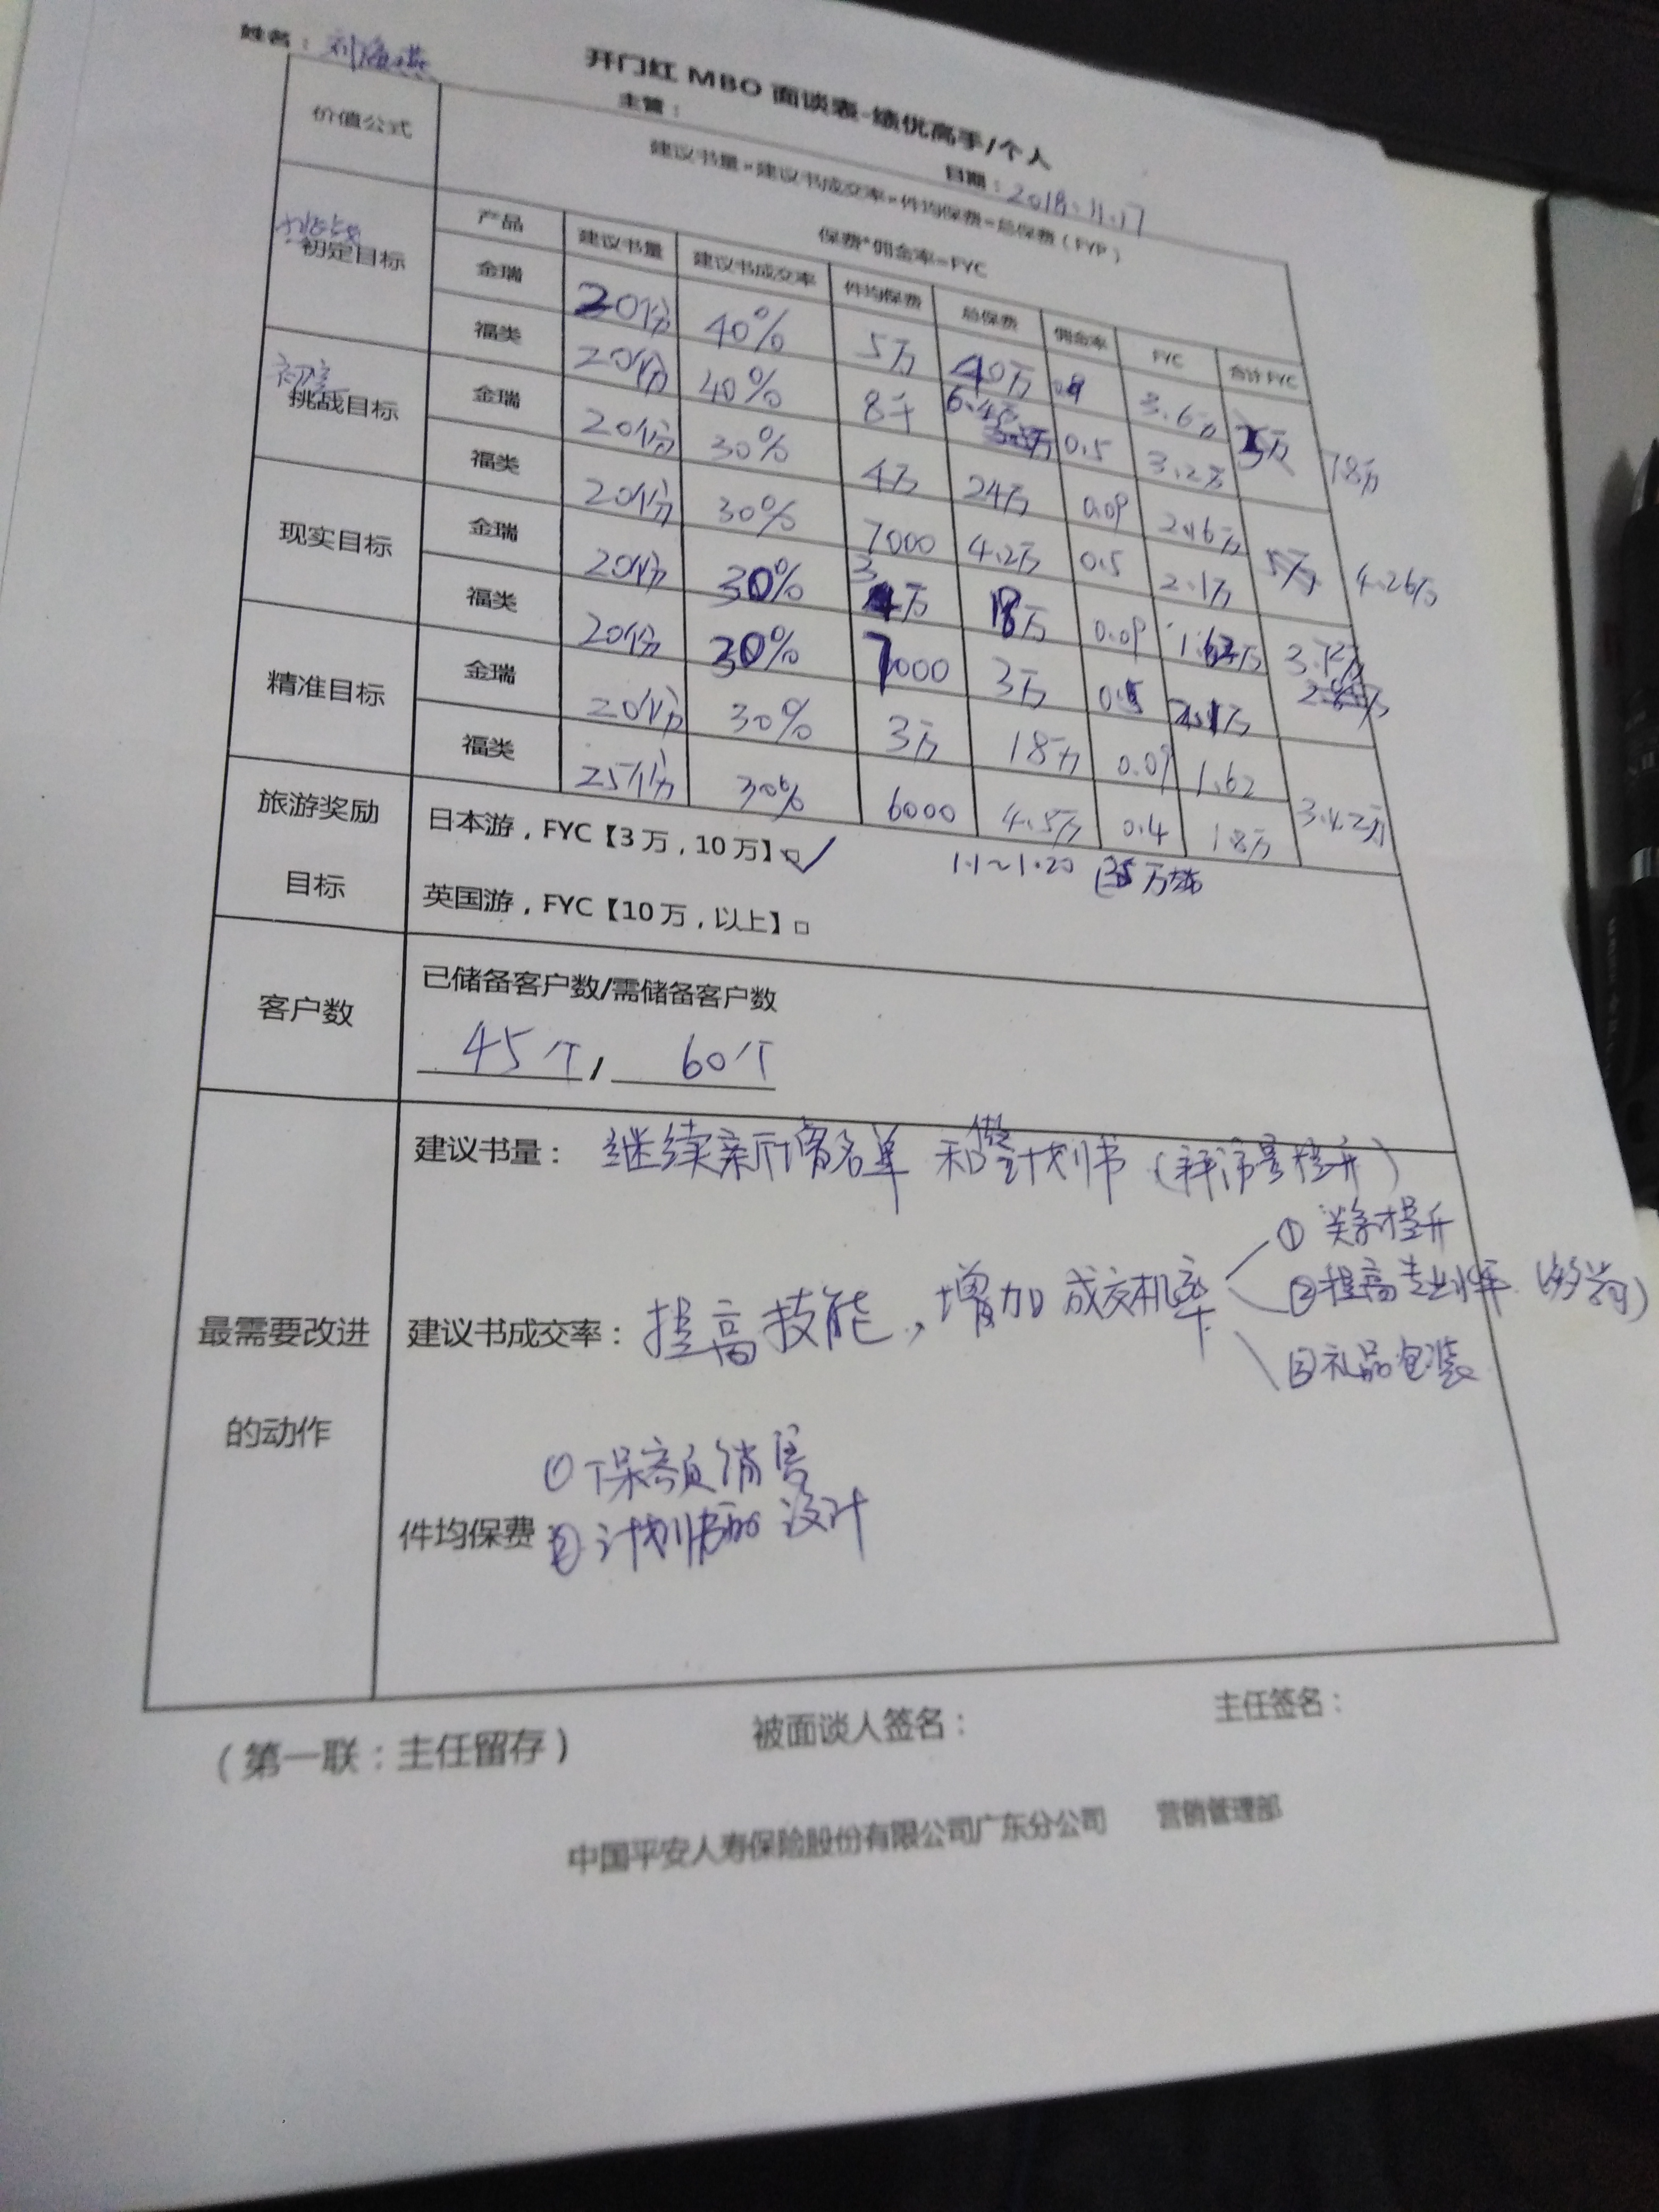 开门红 MBO 面谈表-绩优高手/个人
姓名：刘海燕 主管： 日期：2018.11.17
价值公式 建议书量*建议书成交率*件均保费=总保费（FYP）
保费*佣金率=FYC
产品 建议书量 建议书成交率 件均保费 总保费 佣金率 FYC 合计 FYC
挑战
初定目标 金瑞 20份 40% 5万 40万 3.6万
福类 20份 40% 8千 6.4万 0.5 3.2万
初定
挑战目标 金瑞 20份 30% 4万 24万 0.09 2.16万 5万 4.26万
福类 20份 30% 7000 4.2万 0.5 2.1万
现实目标 金瑞 20份 30% 18万 0.09 1.62万
福类 20份 30% 7000 3万 2.1万
精准目标 金瑞 20份 30% 3万 18万 0.09 1.62 3.42万
福类 25份 30% 6000 4.5万 0.4 1.8万
旅游奖励目标 日本游，FYC【3 万，10 万】□✓ 1.1～1.20
英国游，FYC【10 万，以上】□
客户数 已储备客户数/需储备客户数
45个 / 60个
最需要改进的动作
建议书量：继续新增名单 和做计划书（拜访量提升）
建议书成交率：提高技能，增加成交机率
① 关系提升
②提高专业水平
③礼品包装
件均保费
①保额销售
②计划书的设计
（第一联：主任留存） 被面谈人签名： 主任签名：
中国平安人寿保险股份有限公司广东分公司 营销管理部